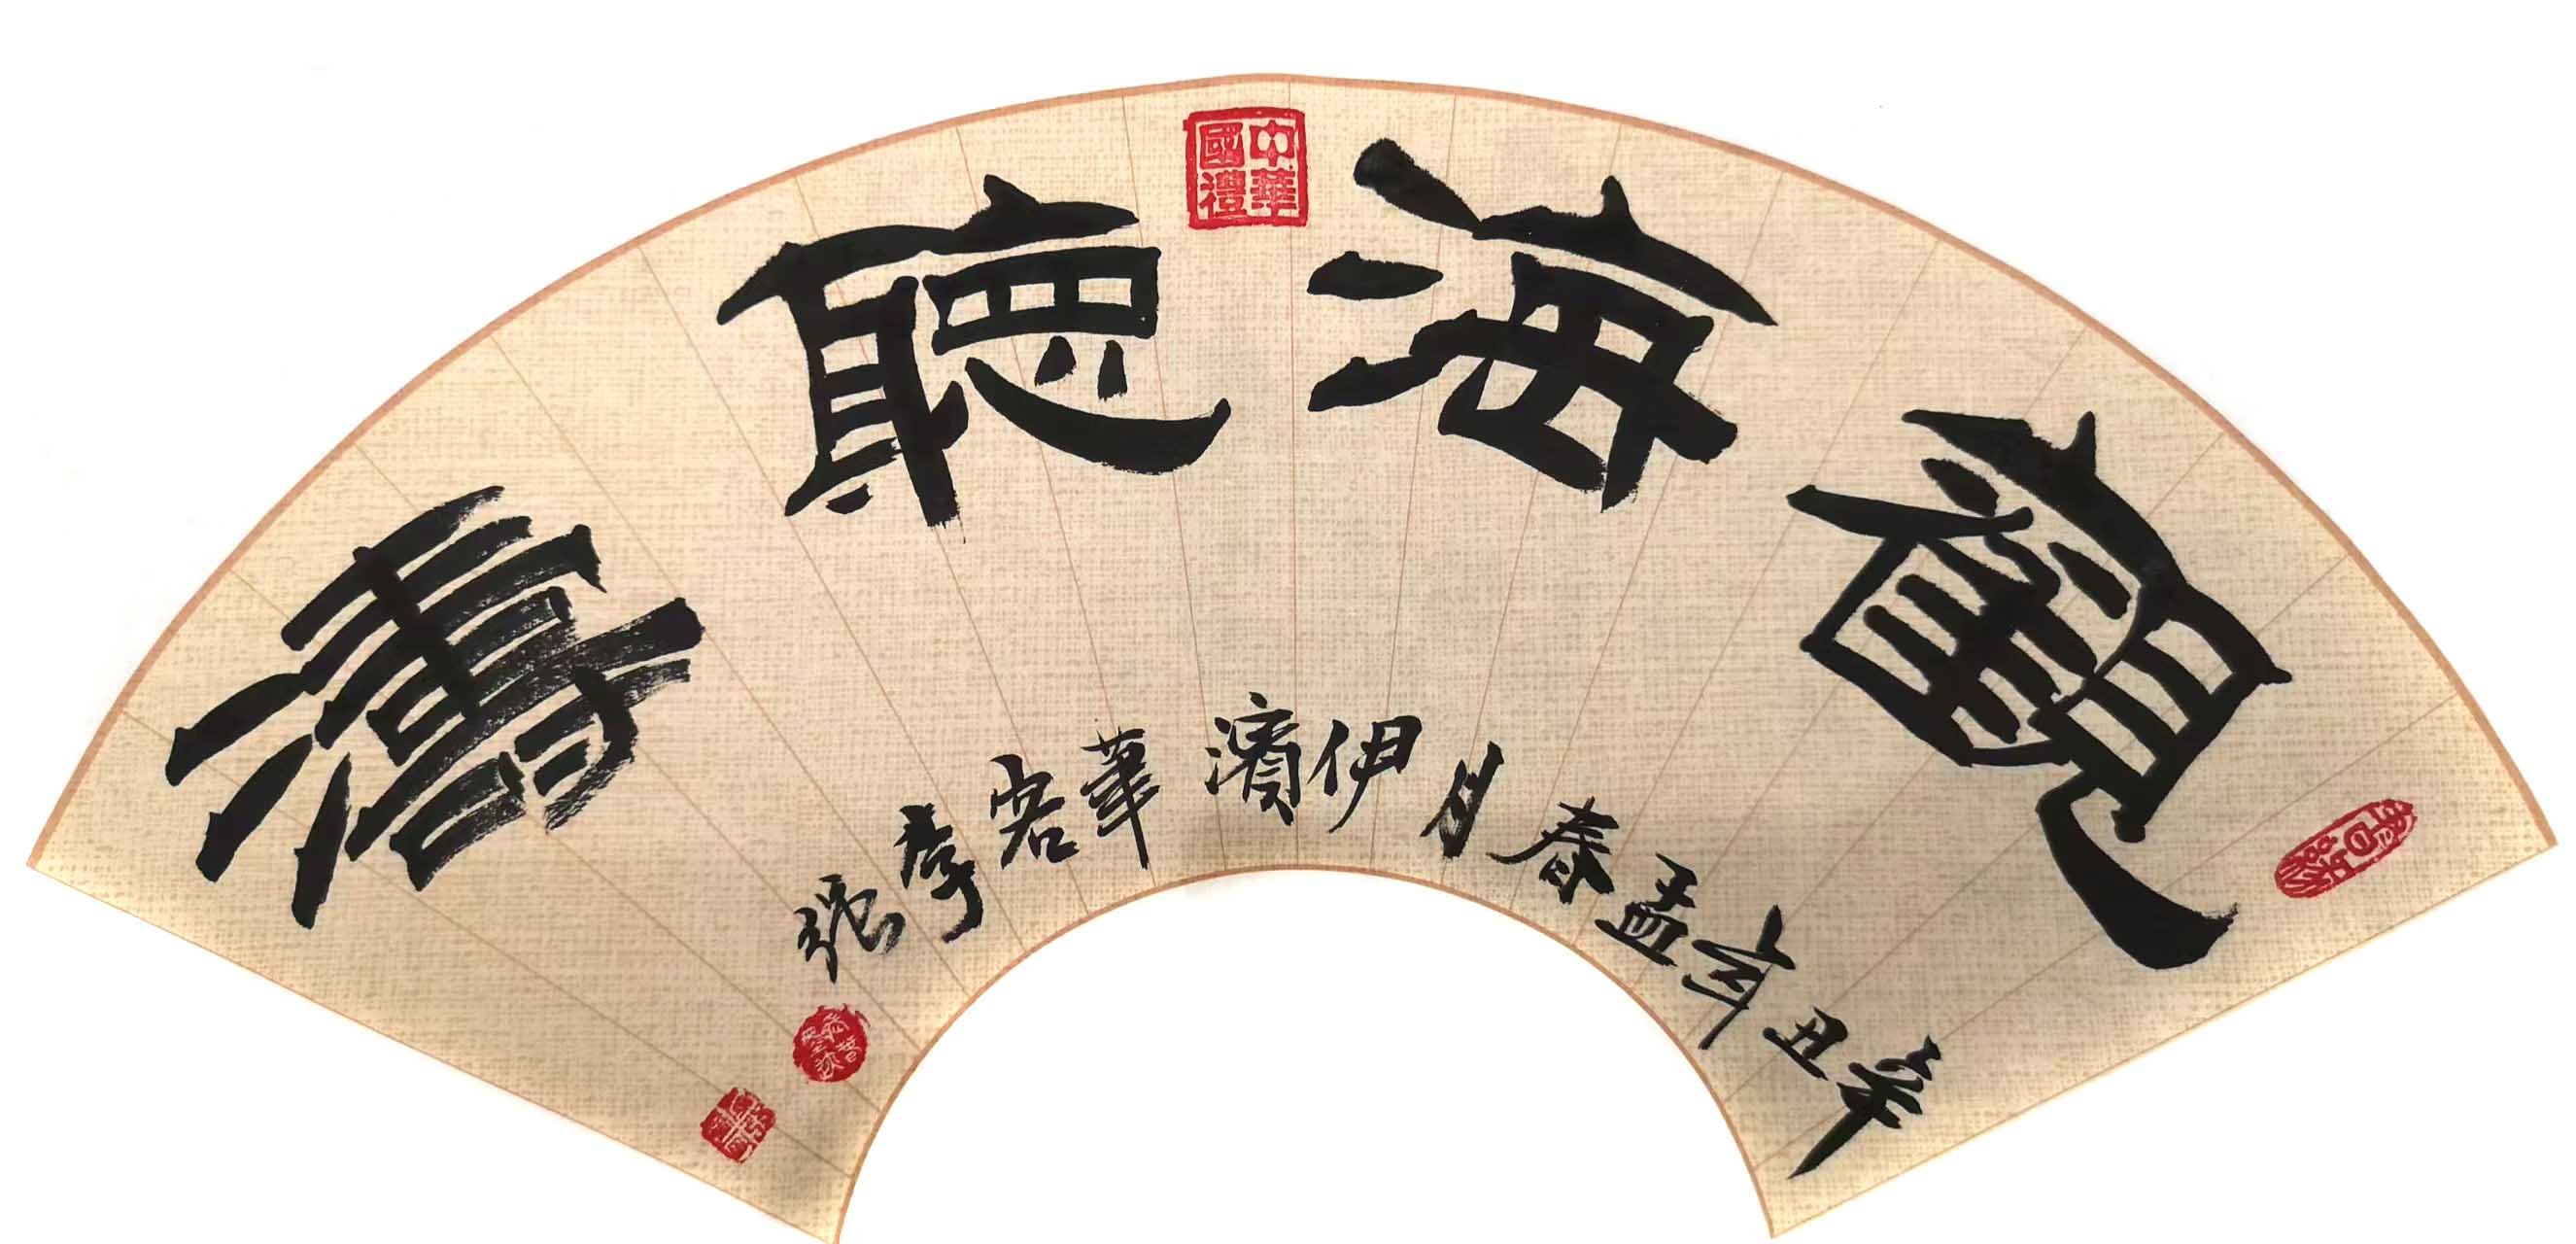 觀海聽濤
辛丑年孟春月伊濱華客李張
中華國禮